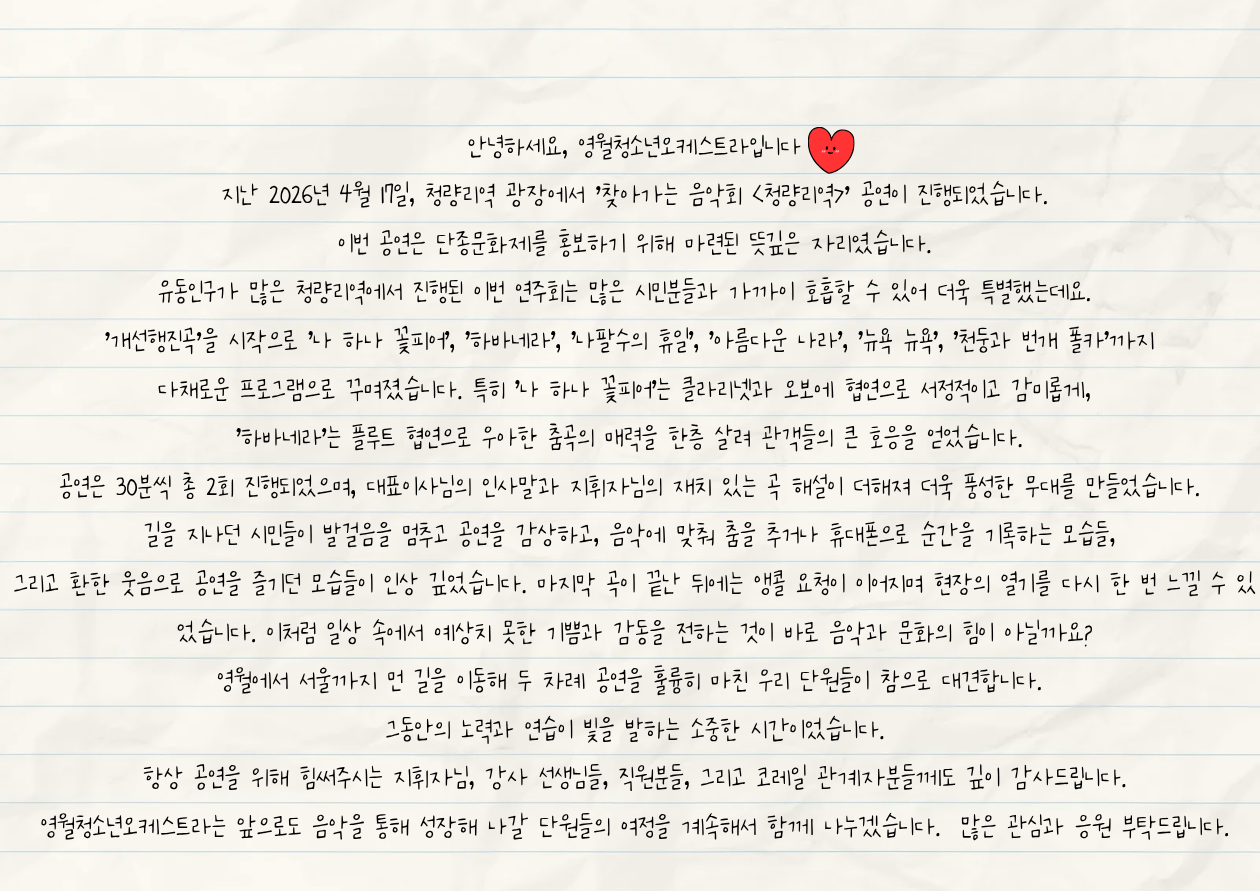 안녕하세요, 영월청소년오케스트라입니다
지난 2026년 4월 17일, 청량리역 광장에서 '찾아가는 음악회 <청량리역>' 공연이 진행되었습니다.
이번 공연은 단종문화제를 홍보하기 위해 마련된 뜻깊은 자리였습니다.
유동인구가 많은 청량리역에서 진행된 이번 연주회는 많은 시민분들과 가까이 호흡할 수 있어 더욱 특별했는데요.
'개선행진곡'을 시작으로 '나 하나 꽃피어', '하바네라', '나팔수의 휴일', '아름다운 나라', '뉴욕 뉴욕', '천둥과 번개 폴카'까지
다채로운 프로그램으로 꾸며졌습니다. 특히 '나 하나 꽃피어'는 클라리넷과 오보에 협연으로 서정적이고 감미롭게,
'하바네라'는 플루트 협연으로 우아한 춤곡의 매력을 한층 살려 관객들의 큰 호응을 얻었습니다.
공연은 30분씩 총 2회 진행되었으며, 대표이사님의 인사말과 지휘자님의 재치 있는 곡 해설이 더해져 더욱 풍성한 무대를 만들었습니다.
길을 지나던 시민들이 발걸음을 멈추고 공연을 감상하고, 음악에 맞춰 춤을 추거나 휴대폰으로 순간을 기록하는 모습들,
그리고 환한 웃음으로 공연을 즐기던 모습들이 인상 깊었습니다. 마지막 곡이 끝난 뒤에는 앵콜 요청이 이어지며 현장의 열기를 다시 한 번 느낄 수 있
었습니다. 이처럼 일상 속에서 예상치 못한 기쁨과 감동을 전하는 것이 바로 음악과 문화의 힘이 아닐까요?
영월에서 서울까지 먼 길을 이동해 두 차례 공연을 훌륭히 마친 우리 단원들이 참으로 대견합니다.
그동안의 노력과 연습이 빛을 발하는 소중한 시간이었습니다.
항상 공연을 위해 힘써주시는 지휘자님, 강사 선생님들, 직원분들, 그리고 코레일 관계자분들께도 깊이 감사드립니다.
영월청소년오케스트라는 앞으로도 음악을 통해 성장해 나갈 단원들의 여정을 계속해서 함께 나누겠습니다. 많은 관심과 응원 부탁드립니다.